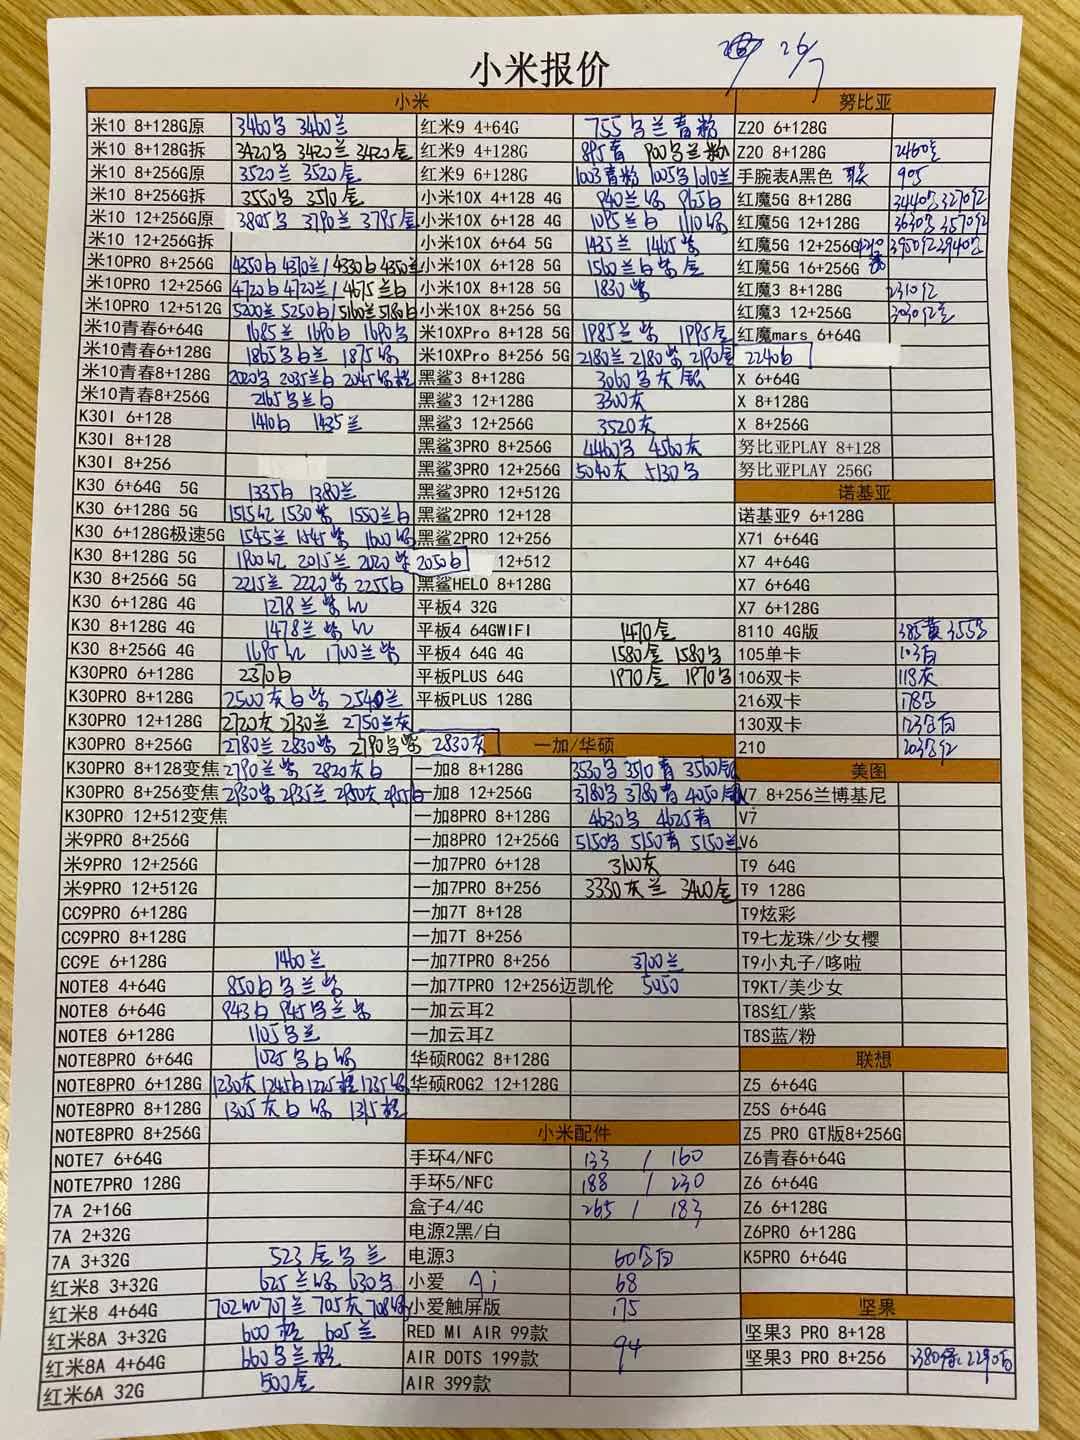 小米报价 26/7
小米 努比亚
米10 8+128G原 3460乌 3460兰 红米9 4+64G 755乌兰青粉 Z20 6+128G
米10 8+128G拆 3420乌 3420兰 3420金 红米9 4+128G 895青 900乌兰粉 Z20 8+128G
米10 8+256G原 3520兰 3520金 红米9 6+128G 1003青粉 1005乌 1010兰 手腕表A黑色 905
米10 8+256G拆 3550乌 3510金 小米10X 4+128 4G 940兰绿 965白 红魔5G 8+128G
米10 12+256G原 3805乌 3790兰 3795金 小米10X 6+128 4G 1095兰白 1110绿 红魔5G 12+128G
米10 12+256G拆 小米10X 6+64 5G 1435兰 1465紫 红魔5G 12+256G
米10PRO 8+256G 4350白 4370兰/4330白 4350兰 小米10X 6+128 5G 1560兰白紫金 红魔5G 16+256G
米10PRO 12+256G 4720白 4720兰/4675兰白 小米10X 8+128 5G 1830紫 红魔3 8+128G 2310红
米10PRO 12+512G 5200兰 5250白/5160兰 5180白 小米10X 8+256 5G 红魔3 12+256G
米10青春6+64G 1685兰 1690白 1690乌 米10XPro 8+128 5G 1985兰紫 1995金 红魔mars 6+64G
米10青春6+128G 1865乌白兰 1875绿 米10XPro 8+256 5G 2180兰 2180紫 2190金 2240白
米10青春8+128G 2020乌 2035兰白 2045绿桃 黑鲨3 8+128G 3060乌灰银 X 6+64G
米10青春8+256G 2165乌兰白 黑鲨3 12+128G 3300灰 X 8+128G
K30I 6+128 1410白 1435兰 黑鲨3 12+256G 3520灰 X 8+256G
K30I 8+128 黑鲨3PRO 8+256G 4460乌 4560灰 努比亚PLAY 8+128
K30I 8+256 黑鲨3PRO 12+256G 5040灰 5130乌 努比亚PLAY 256G
K30 6+64G 5G 1335白 1380兰 黑鲨3PRO 12+512G 诺基亚
K30 6+128G 5G 1515红 1530紫 1550兰白 黑鲨2PRO 12+128 诺基亚9 6+128G
K30 6+128G极速5G 1545兰 1545紫 1600绿 黑鲨2PRO 12+256 X71 6+64G
K30 8+128G 5G 1900红 2015兰 2020紫 2050白 12+512 X7 4+64G
K30 8+256G 5G 2215兰 2220紫 2255白 黑鲨HELO 8+128G X7 6+64G
K30 6+128G 4G 1278兰紫红 平板4 32G X7 6+128G
K30 8+128G 4G 1478兰紫红 平板4 64GWIFI 1470金 8110 4G版 385黄 355乌
K30 8+256G 4G 1695红 1700兰紫 平板4 64G 4G 1580金 1580乌 105单卡 103白
K30PRO 6+128G 2370白 平板PLUS 64G 1970金 1970乌 106双卡 118灰
K30PRO 8+128G 2500灰白紫 2540兰 平板PLUS 128G 216双卡
K30PRO 12+128G 2720灰 2730兰 2750兰灰 130双卡
K30PRO 8+256G 2780兰 2830紫 2790乌紫 2830灰 一加/华硕 210
K30PRO 8+128变焦 2790兰紫 2820灰白 一加8 8+128G 3530乌 3510青 3560银 美图
K30PRO 8+256变焦 2930紫 2935兰 2950灰 2955白 一加8 12+256G 3780乌 3780青 4050银 V7 8+256兰博基尼
K30PRO 12+512变焦 一加8PRO 8+128G 4630乌 4625青 V7
米9PRO 8+256G 一加8PRO 12+256G 5150乌 5150青 5150兰 V6
米9PRO 12+256G 一加7PRO 6+128 3100灰 T9 64G
米9PRO 12+512G 一加7PRO 8+256 3330灰兰 3400金 T9 128G
CC9PRO 6+128G 一加7T 8+128 T9炫彩
CC9PRO 8+128G 一加7T 8+256 T9七龙珠/少女樱
CC9E 6+128G 1460兰 一加7TPRO 8+256 3700兰 T9小丸子/哆啦
NOTE8 4+64G 850白乌兰紫 一加7TPRO 12+256迈凯伦 5050 T9KT/美少女
NOTE8 6+64G 943白 945乌兰紫 一加云耳2 T8S红/紫
NOTE8 6+128G 1105乌兰 一加云耳Z T8S蓝/粉
NOTE8PRO 6+64G 1025乌白绿 华硕ROG2 8+128G 联想
NOTE8PRO 6+128G 1230灰 1245白 1225桃 1235绿 华硕ROG2 12+128G Z5 6+64G
NOTE8PRO 8+128G 1305灰白绿 1315桃 Z5S 6+64G
NOTE8PRO 8+256G 小米配件 Z5 PRO GT版8+256G
NOTE7 6+64G 手环4/NFC 133 / 160 Z6青春6+64G
NOTE7PRO 128G 手环5/NFC 188 / 230 Z6 6+64G
7A 2+16G 盒子4/4C 265 / 183 Z6 6+128G
7A 2+32G 电源2黑/白 Z6PRO 6+128G
7A 3+32G 523金乌兰 电源3 60 K5PRO 6+64G
红米8 3+32G 625兰绿 630乌 小爱 Ai 68
红米8 4+64G 702红 707兰 705灰 708绿 小爱触屏版 175 坚果
红米8A 3+32G 600桃 605兰 RED MI AIR 99款 94 坚果3 PRO 8+128
红米8A 4+64G 660乌兰桃 AIR DOTS 199款 坚果3 PRO 8+256
红米6A 32G 500金 AIR 399款